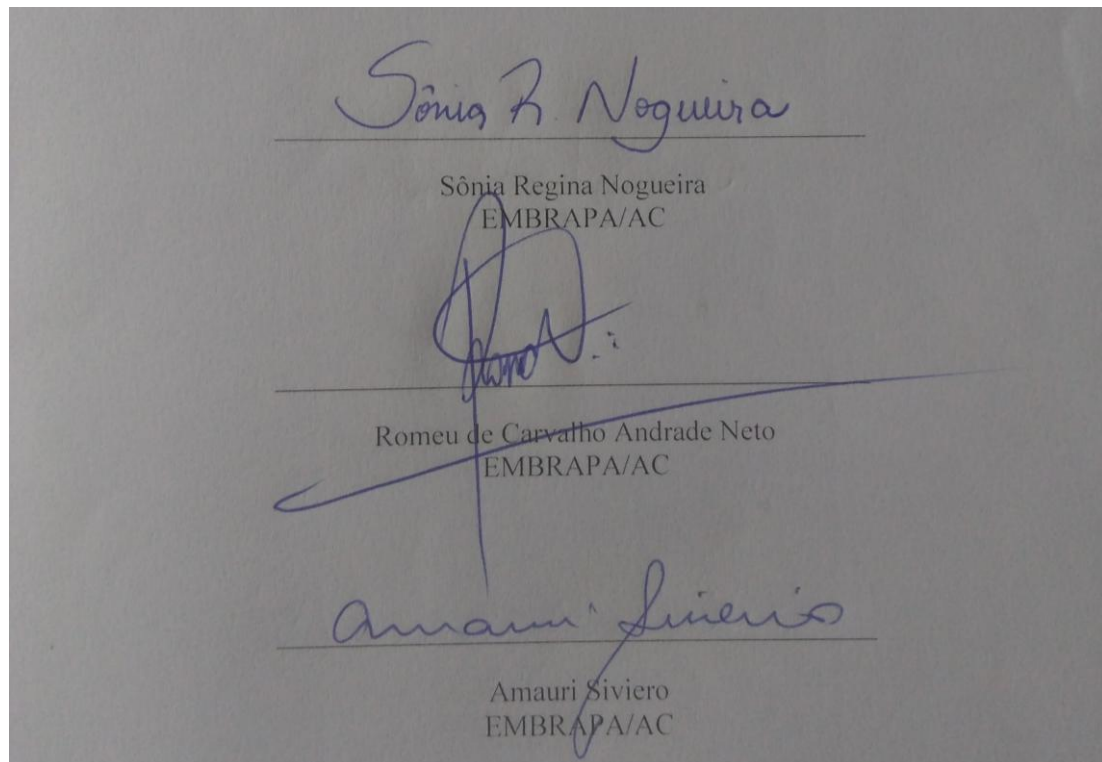 Sônia R. Nogueira
Sônia Regina Nogueira
EMBRAPA/AC
Romeu de Carvalho Andrade Neto
EMBRAPA/AC
Amauri Siviero
Amauri Siviero
EMBRAPA/AC